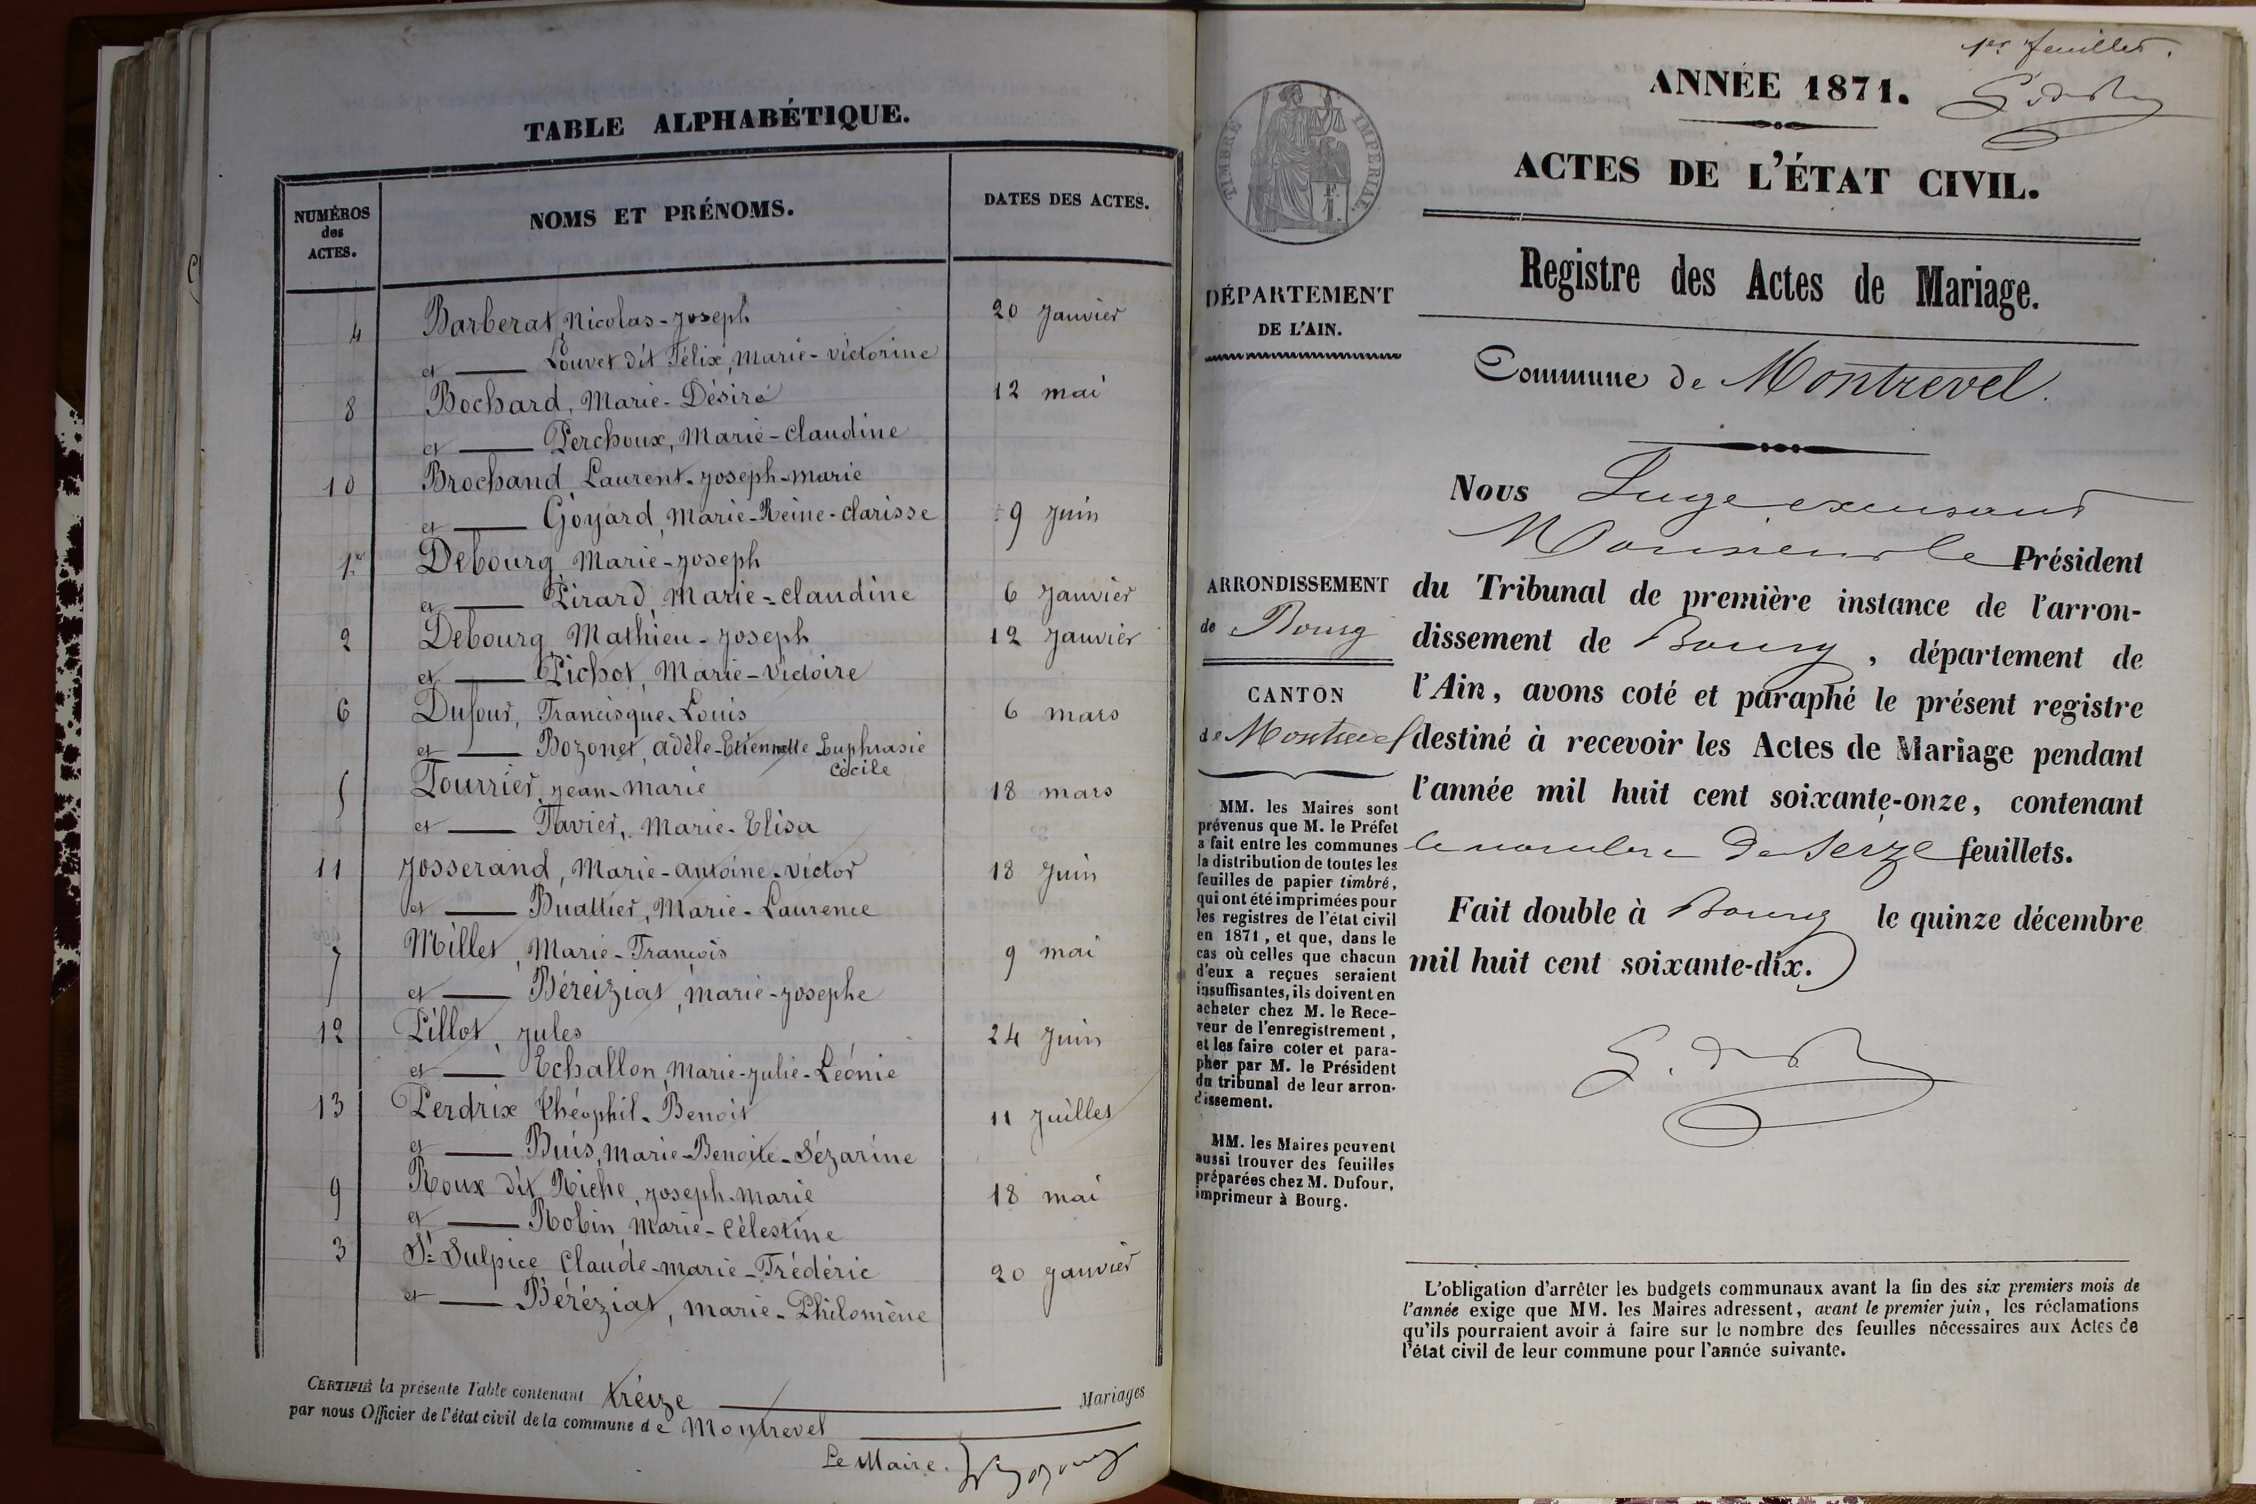 TABLE ALPHABÉTIQUE.
NUMÉROS
des
ACTES.
NOMS ET PRÉNOMS.
DATES DES ACTES.
4 Barberat, Nicolas-Joseph 20 Janvier
et Louvet dit Félix, Marie-Victorine
8 Bochard, Marie-Désiré 12 mai
et Perchoux, Marie-Claudine
10 Brochand Laurent-Joseph-Marie
et Goyard, Marie-Reine-Clarisse 9 Juin
1er Debourg Marie-Joseph
et Pirard, Marie-Claudine 6 Janvier
2 Debourg Mathieu-Joseph 12 Janvier
et Pichot, Marie-Victoire
6 Dufour, Francisque-Louis 6 mars
et Bozonet, Adèle-Etiennette Euphrasie
Cécile
5 Fourrier, Jean-Marie 18 mars
et Favier, Marie-Elisa
11 Josserand, Marie-Antoine-Victor 18 Juin
et Buattier, Marie-Laurence
7 Millet, Marie-François 9 mai
et Béréiziat, Marie-Josephe
12 Pillot, Jules 24 Juin
et Echallon, Marie-Julie-Léonie
13 Perdrix Théophil-Benoit 11 Juillet
et Buis, Marie-Benoite-Sézarine
9 Roux dit Riche, Joseph-Marie 18 mai
et Robin, Marie-Célestine
3 St Sulpice Claude-Marie-Frédéric 20 Janvier
et Béréziat, Marie-Philomène
CERTIFIÉ la présente Table contenant treize Mariages
par nous Officier de l'état civil de la commune de Montrevel
Le Maire.
1er feuillet.
TIMBRE IMPERIAL
1 F.
ANNÉE 1871.
ACTES DE L'ÉTAT CIVIL.
Registre des Actes de Mariage.
Commune de Montrevel.
DÉPARTEMENT
DE L'AIN.
ARRONDISSEMENT
de Bourg
CANTON
de Montrevel
MM. les Maires sont
prévenus que M. le Préfet
a fait entre les communes
la distribution de toutes les
feuilles de papier timbré,
qui ont été imprimées pour
les registres de l'état civil
en 1871, et que, dans le
cas où celles que chacun
d'eux a reçues seraient
insuffisantes, ils doivent en
acheter chez M. le Rece-
veur de l'enregistrement,
et les faire coter et para-
pher par M. le Président
du tribunal de leur arron-
dissement.
MM. les Maires peuvent
aussi trouver des feuilles
préparées chez M. Dufour,
imprimeur à Bourg.
Nous Juge
Monsieur le Président
du Tribunal de première instance de l'arron-
dissement de Bourg, département de
l'Ain, avons coté et paraphé le présent registre
destiné à recevoir les Actes de Mariage pendant
l'année mil huit cent soixante-onze, contenant
le nombre de seize feuillets.
Fait double à Bourg le quinze décembre
mil huit cent soixante-dix.
L'obligation d'arrêter les budgets communaux avant la fin des six premiers mois de
l'année exige que MM. les Maires adressent, avant le premier juin, les réclamations
qu'ils pourraient avoir à faire sur le nombre des feuilles nécessaires aux Actes de
l'état civil de leur commune pour l'année suivante.